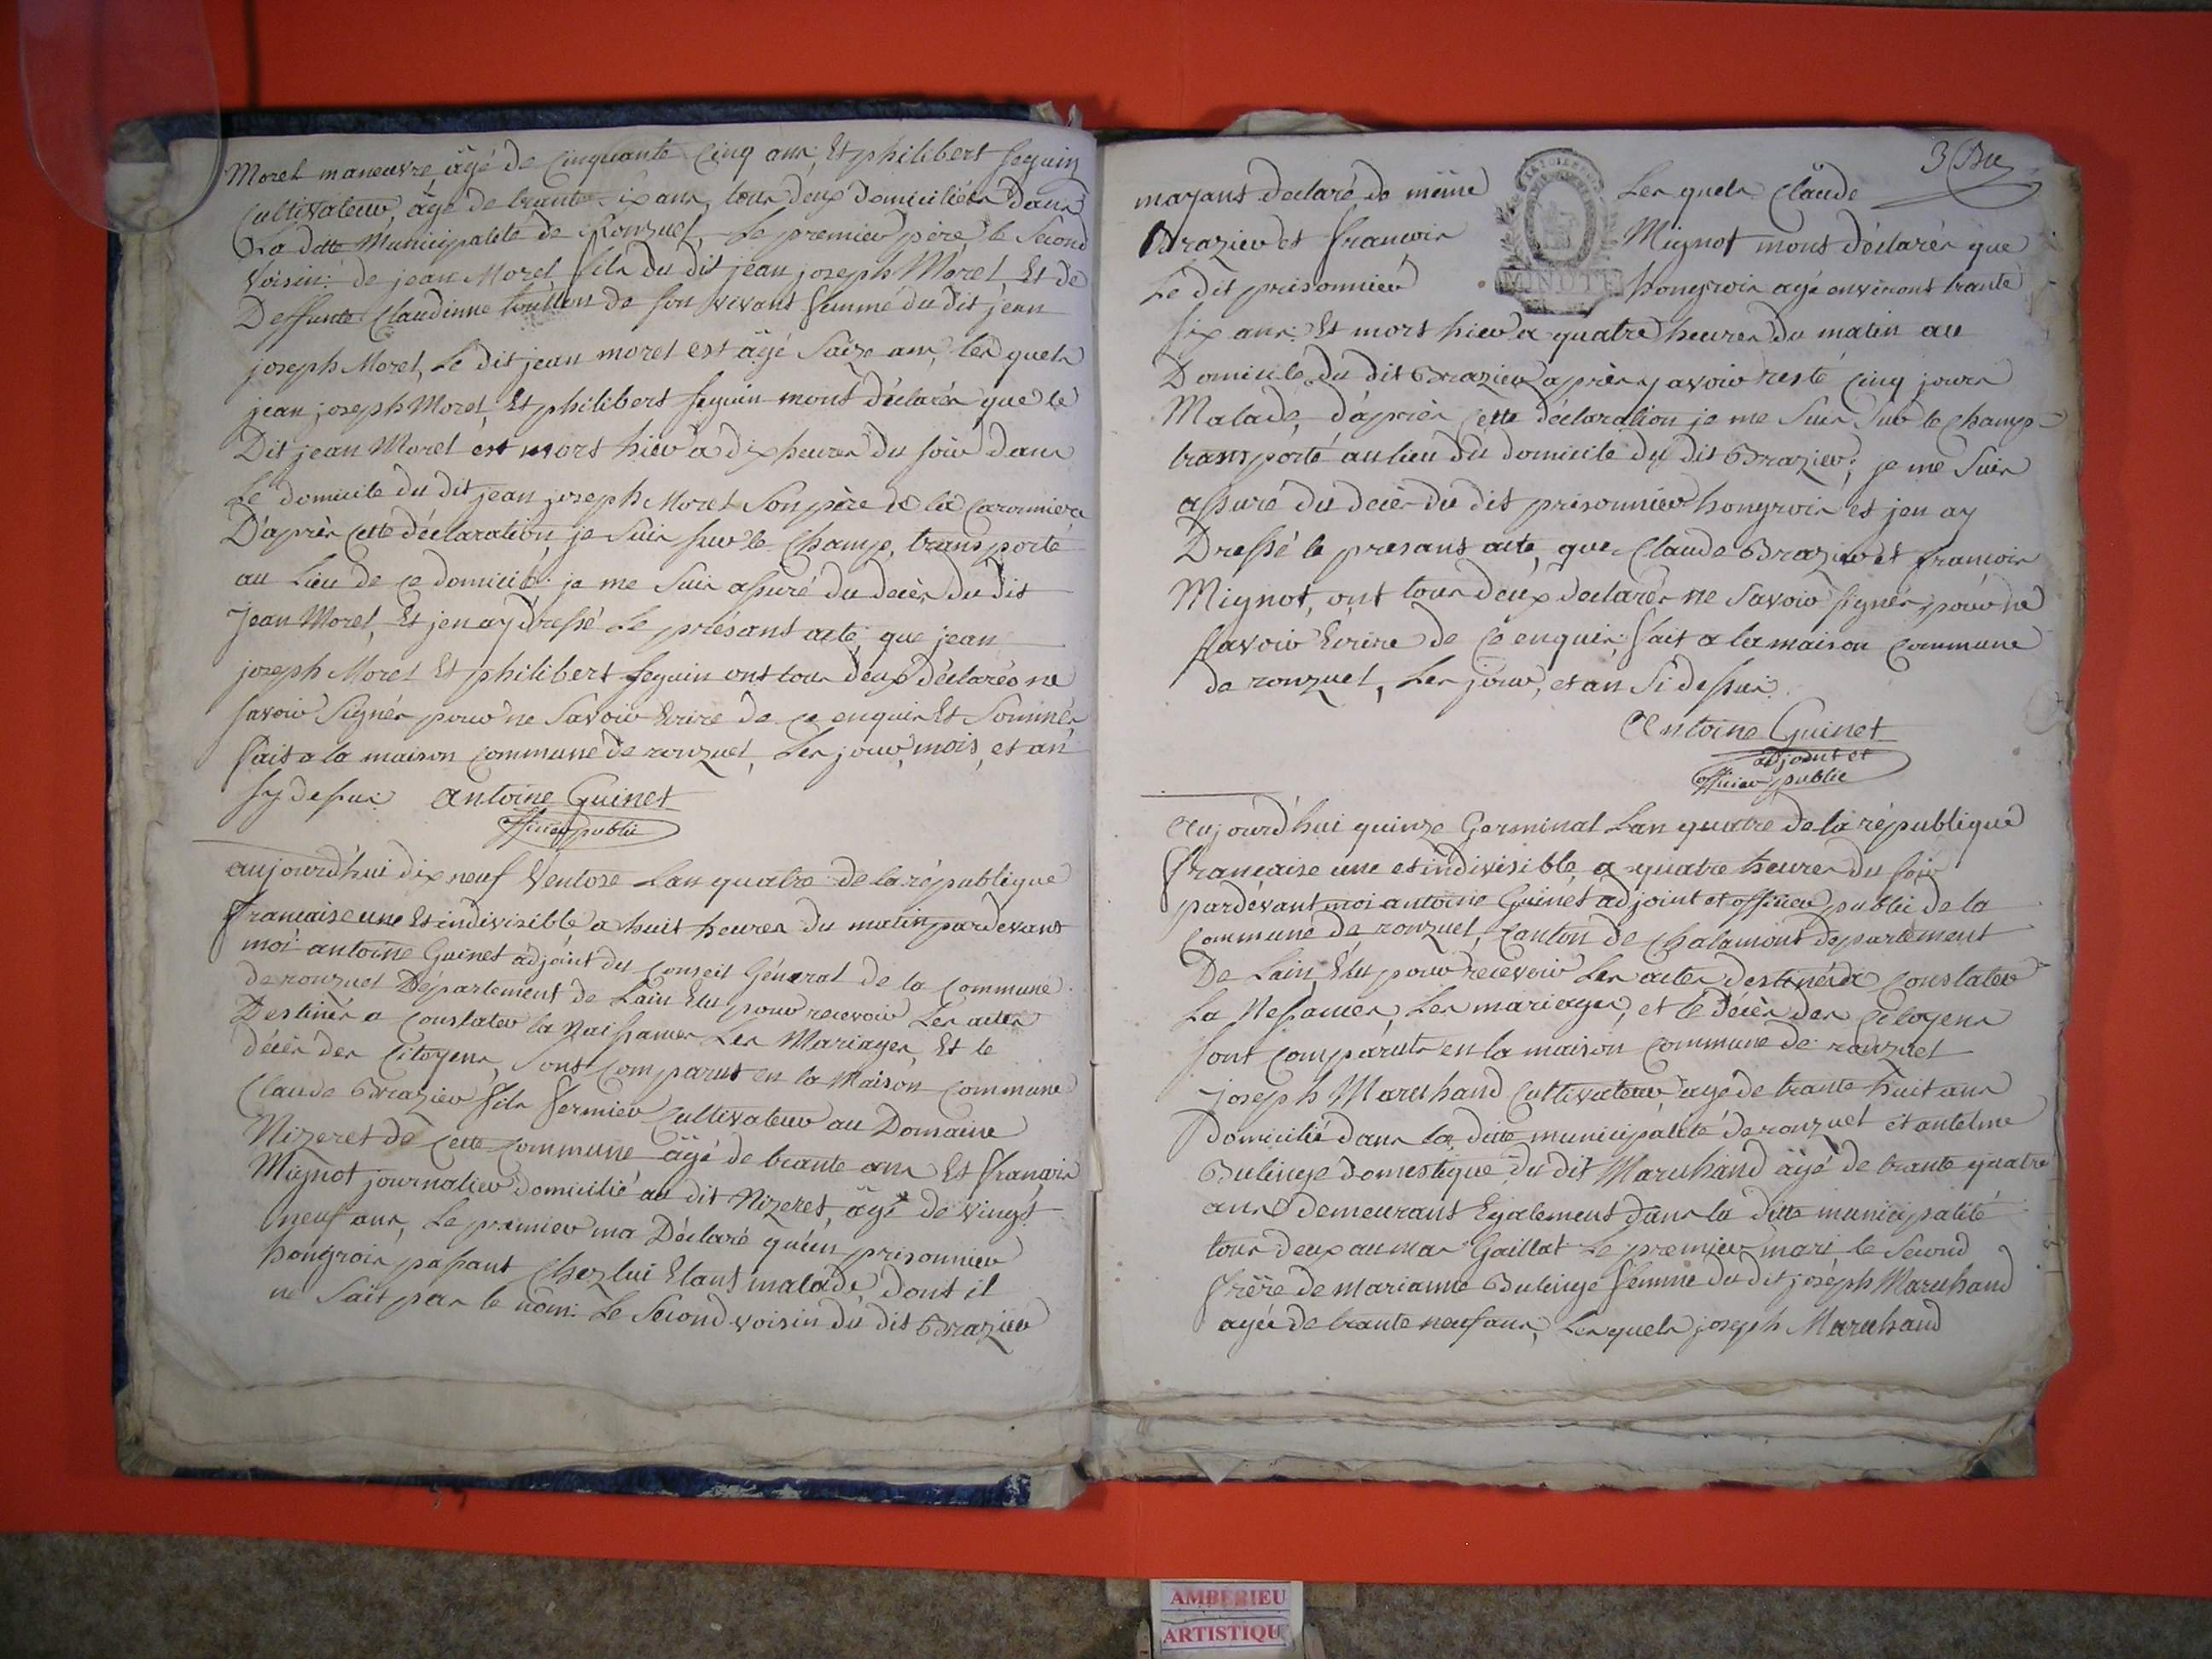 Morel maneuvre âgé de Cinquante Cinq ans, Et philibert seguin
Cultivateur, âgé de trante six ans, tous deux domiciliées dans
La ditte Municipalité de Ronzuel, Le premier père le Second
voisin: de jean Morel fils du dit jean joseph Morel, Et de
Deffunte Claudinne de son vivant femme du dit jean
joseph Morel, Le dit jean morel est âgé Saize ans, les quels
jean joseph Morel, Et philibert seguin mont déclarés que le
Dit jean Morel est mort hier a dix heures du soir dans
Le domicile du dit jean joseph Morel Son père de la
D'après Cette déclaration, je suis sur le Champ, transporté
au Lieu de ce domicile: je me suis assuré du decès du dit
Jean Morel, Et jen ay dressé Le présant acte, que jean
joseph Morel Et philibert seguin ont tous deux déclarés ne
savoir Signér pour ne Savoir Ecrire de ce enquis Et Sommés
fait a la maison commune de ronzuel, Les jour, mois, et an
sy dessus antoine Guinet
officier public
aujourd'hui dix neuf Ventose Lan quatre de la république
francaise une Et indivisible a huit heures du matin pardevant
moi antoine Guinet adjoint du Conseil Général de la Commune
de ronzuel Département de Lain Elu pour recevoir Les actes
Destinés a Constater la Naissances Les Mariages, Et le
décès des Citoyens, Sont Comparus en la Maison Commune
Claude Brazier fils fermier Cultivateur au Domaine
Nizeret de Cette Commune âgé de trante ans Et françois
Mignot journalier domicilié au dit Nizeret, âgé de vingt
neuf ans, Le premier ma Déclaré qu'un prisonnier
hongrois passant Chez lui Etant malade, dont il
ne Sait pas le nom: Le Second voisin du dit Brazier
3
mayant declaré de même Les quels Claude
Brazier et françois Mignot mont déclarés que
Le dit prisonnier MINUTE hongrois agé environt trante
six ans: Et mort hier a quatre heures du matin au
Domicile du dit Brazier après y avoir resté Cinq jours
Malade, d'après Cette déclaration je me suis sur le Champ
transporté au lieu du domicile du dit Brazier; je me suis
assuré du decès du dit prisonnier hongrois et jen ay
Dressé le presant acte, que Claude Brazier et francois
Mignot, ont tous deux declarés ne Savoir signér, pour ne
savoir Ecrire de ce enquis: fait a la maison Commune
de ronzuel, Les jour, et an Si dessus:
Antoine Guinet
adjoint et
officier public
Aujourd'hui quinze Germinal Lan quatre de la république
francaise une et indivisible, a quatre heures du soir
pardevant moi antoine Guinet adjoint et officier public de la
Commune de ronzuel, Canton de Chalamont departement
De Lain, Elu pour recevoir Les actes destinés a Constater
La Nessances, Les mariages, et le décès des Citoyens
sont comparuts en la maison Commune de ronzuel
joseph Maréchand Cultivateur agé de trante huit ans
Domicilié dans la ditte municipalité de ronzuel et antelme
Bulinge domestique du dit Maréchand âgé de trante quatre
ans demeurant Egalement dans la ditte municipalité
tous deux au mas Gaillat Le premier mari le Second
frère de marianne Bulinge femme du dit joseph Maréchand
agée de trante neuf ans, Lesquels joseph Maréchand
AMBERIEU
ARTISTIQU